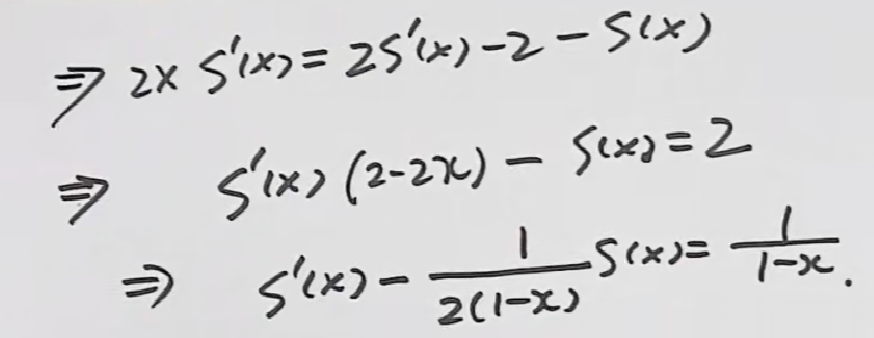 ⇒ 2x S'(x) = 2S'(x) - 2 - S(x)
⇒ S'(x) (2-2x) - S(x) = 2
⇒ S'(x) - \frac{1}{2(1-x)} S(x) = \frac{1}{1-x}.